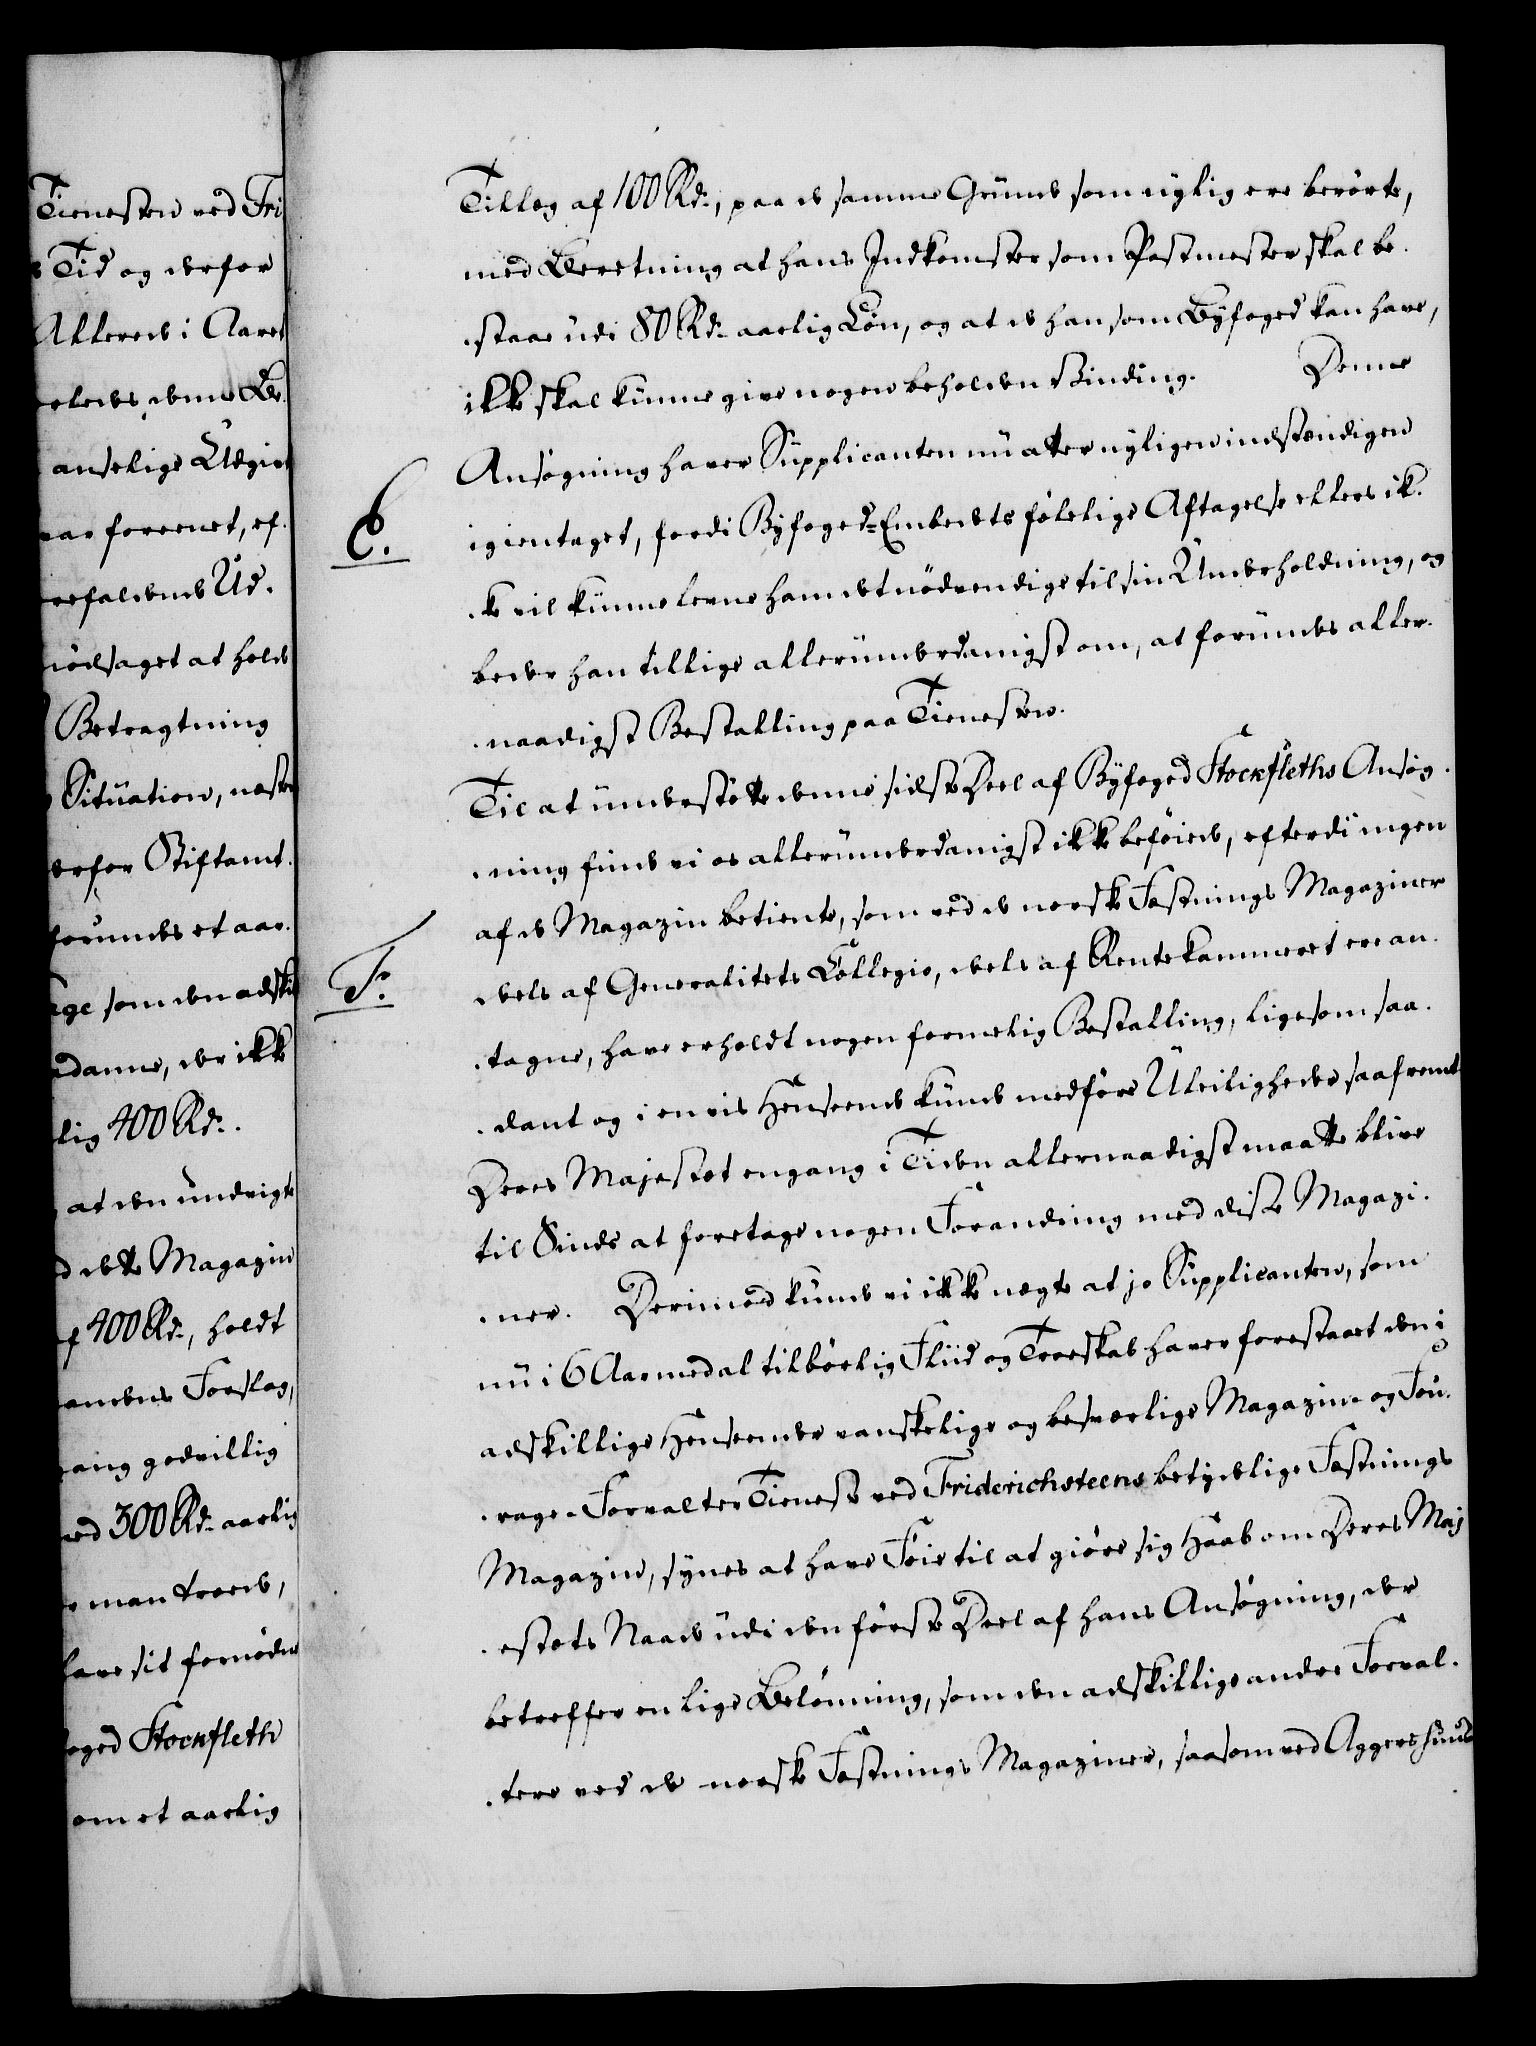 Tienesten ved Fri
Tid og derfor
Allerede i Aaret
eledes denne Be-
anselige Udgiv
var foreenet, ef-
refaldende Ud-
nödsaget at holde
Betragtning
Situation, næst
derfor Stiftamt-
forundes et aar-
age som den adski
danne, der ikke
lig 400 Rd.
at den undvigte
d dette Magazin
f 400 Rd., holdt
andens Forslag,
gang godvillig
ved 300 Rd. aarlig
man troede,
have sit fornödne
oged Stockfleth
om et aarlig
Tillæg af 100 Rd., paa de samme Grunde som nylig ere berörte,
med Beretning at hans Indkomster som Postmester skal be-
-staae udi 80 Rd. aarlig Lön, og at de han som Byfoged kan have,
ikke skal kunne give nogen beholden Binding. Denne
Ansögning haver Supplicanten nu atter nyligen indstændigen
E.
igientaget, fordi Byfoged-Embedets fölelige Aftagelse ellers ik-
-ke vil kunne levne ham det nödvendige til sin Underholdning, og
beder han tillige allerunderdanigst om, at forundes aller-
-naadigst Bestalling paa Tienesten.
Til at understötte denne sidste Deel af Byfoged Stockfleths Ansög-
-ning finde vi os allerunderdanigst ikke beföiede, efterdi ingen
af de Magazin betiente, som ved de norske Fæstnings Magaziner
F.
deels af Generalitets Collegio, deels af Rentekammeret ere an-
-tagne, have erholdt nogen formelig Bestalling, ligesom saa-
-dant og i en vis Henseende kunde medföre Uleiligheder saafremt
Deres Majestet engang i Tiden allernaadigst maatte blive
til Sinds at foretage nogen Forandring med disse Magazi-
-ner. Derimod kunde vi ikke nægte at jo Supplicanten, som
nu i 6 Aar med al tilbörlig Fliid og Troeskab haver forestaaet den i
adskillige Henseender vanskelige og besværlige Magazin- og Fou-
-rage-Forvalter Tieneste ved Friderichsteens betydelige Fæstnings
Magazin, synes at have Föie til at giöre sig Haab om Deres Maj-
-estets Naade udi den förste Deel af hans Ansögning, der
betreffer en lige Belönning, som den adskillige andre Forval-
-tere ved de norske Fæstnings Magaziner, saasom ved Aggershuus